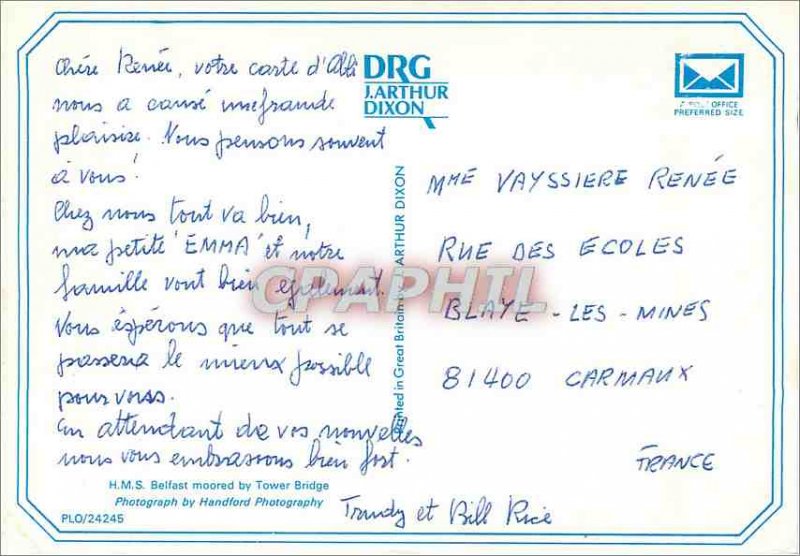 Chère Renée, votre carte d'Albi
nous a causé une grande
plaisize. Nous pensons souvent
à vous!
Chez nous tout va bien,
ma petite 'EMMA' et nôtre
famille vont bien egalement.
Vous éspérons que tout se
passera le mieux possible
pour vous.
En attendant de vos nouvelles
nous vous embrassons bien fort.
Trudy et Bill Rice
H.M.S. Belfast moored by Tower Bridge
Photograph by Handford Photography
PLO/24245
DRG
J.ARTHUR
DIXON
Printed in Great Britain by J. ARTHUR DIXON
POST OFFICE
PREFERRED SIZE
MME VAYSSIERE RENÉE
RUE DES ECOLES
BLAYE-LES-MINES
81400 CARMAUX
FRANCE
CPAPHIL